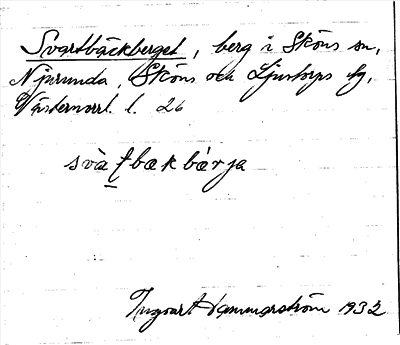 Svartbäckberget, berg i Sköns sn,
Njurunda, Sköns och Ljustorps tg,
Västernorrl. l. 26
svàtbækbæ̀rja
Ingvart Hammarström 1932